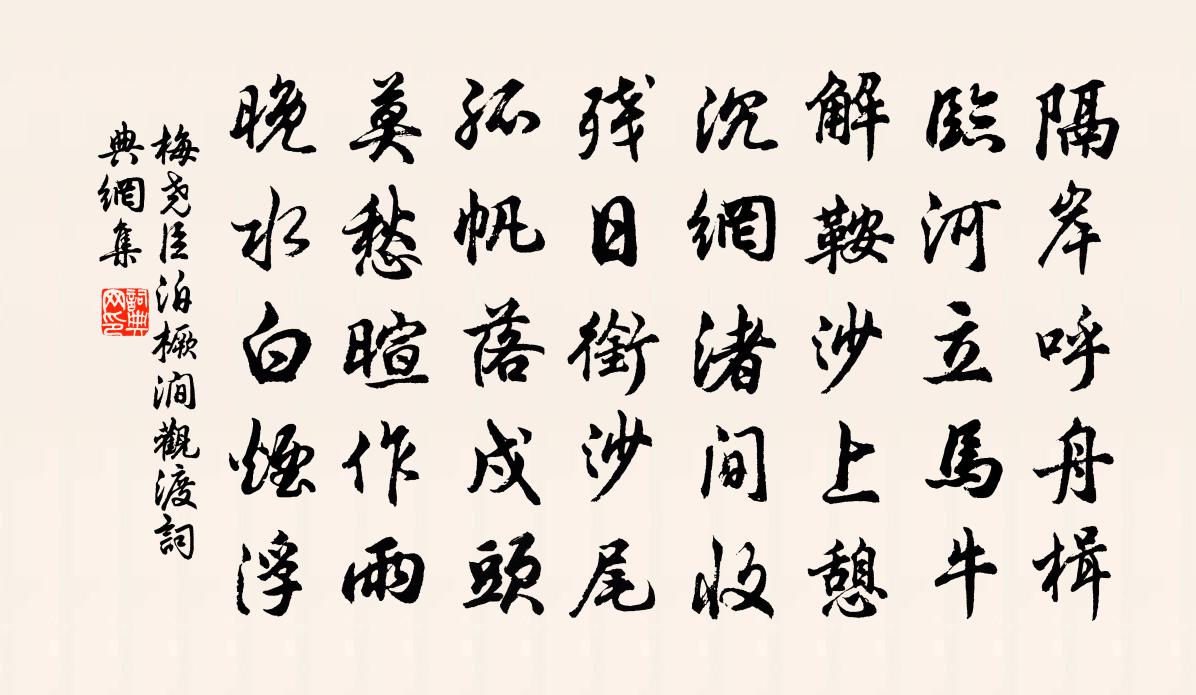 隔岸呼舟楫
臨河立馬牛
解鞍沙上憩
沉網渚間收
残日銜沙尾
孤帆落戍頭
莫愁暄作雨
晚水白煙浮
梅尧臣泊橛澗觀渡詞
典網集
詞典
网印